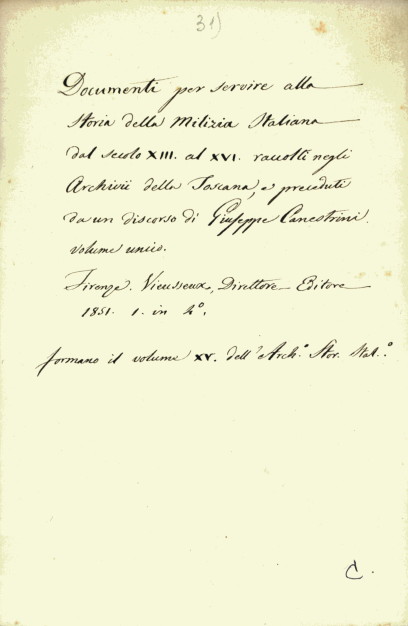 31)
Documenti per servire alla
Storia della Milizia Italiana
dal secolo XIII. al XVI. raccolti negli
Archivii della Toscana, e preceduti
da un discorso di Giuseppe Canestrini.
volume unico.
Firenze. Vieusseux, Direttore-Editore
1851. 1. in 4°.
formano il volume XV. dell'Arch.° Stor. Ital.°
C.